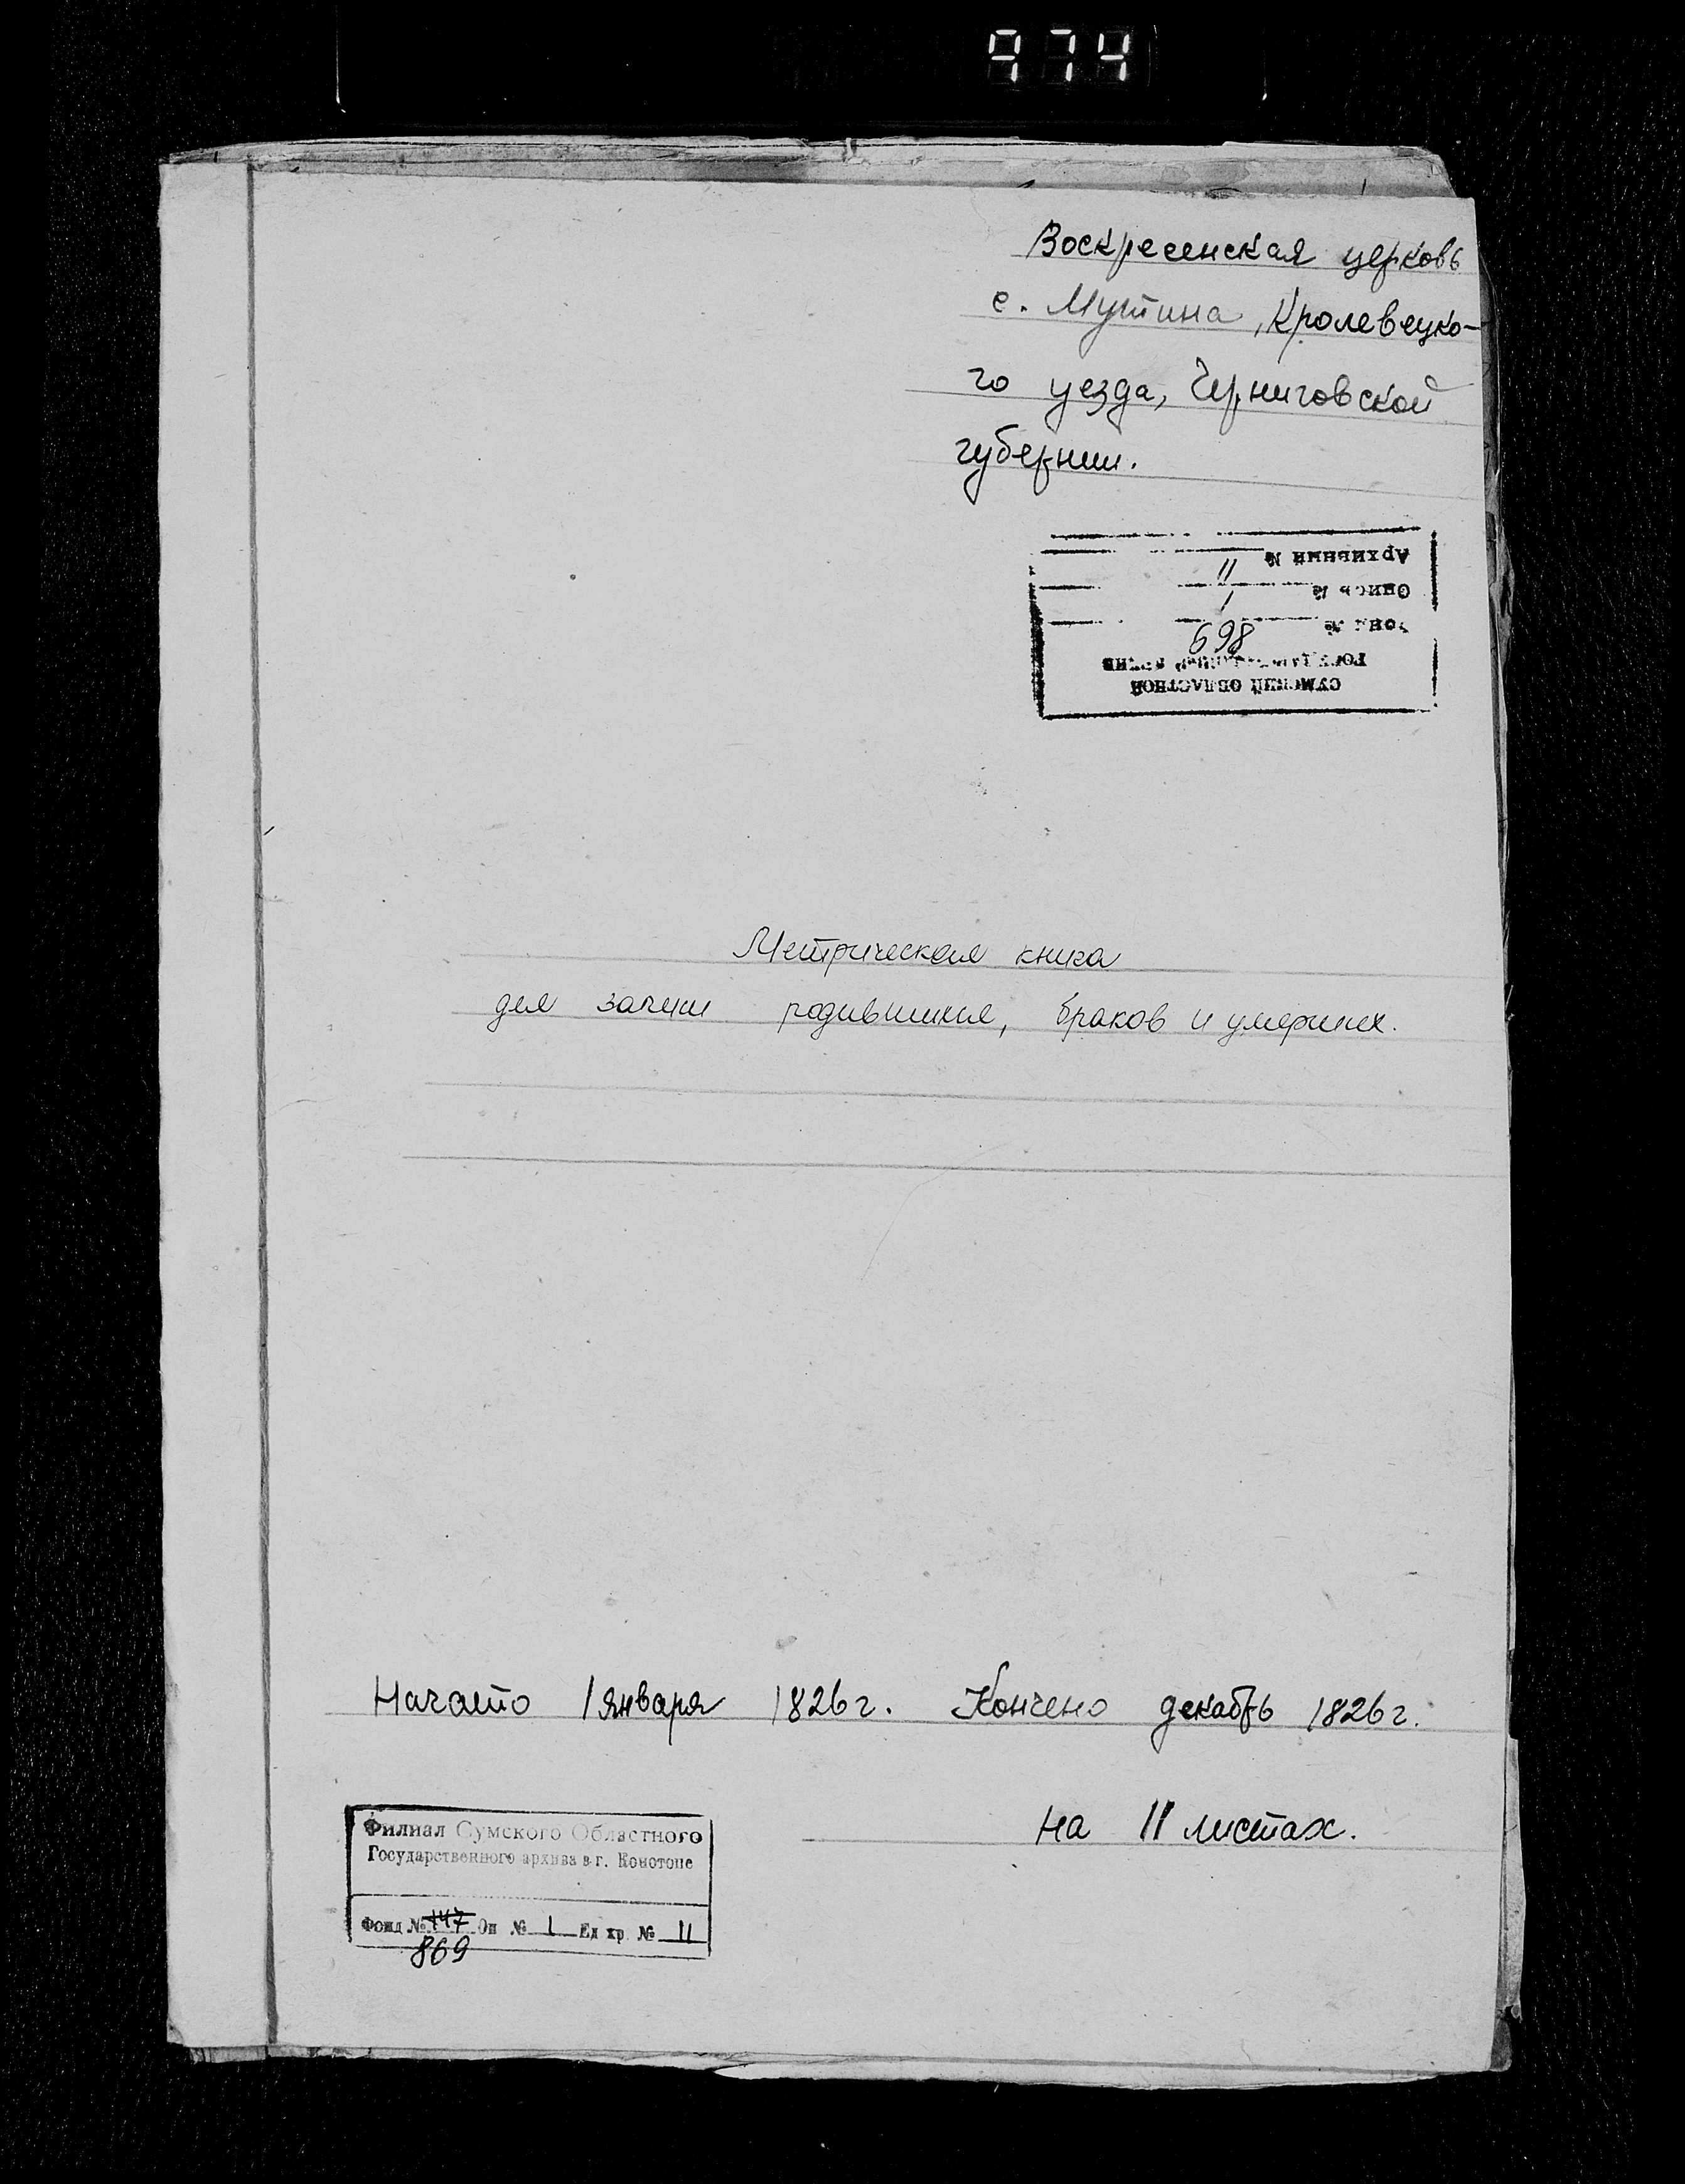 974
Воскресенская церковь
с. Мутина, Кролевецко-
го уезда, Черниговской
губернии.
СУМСКИЙ ОБЛАСТНОЙ
ГОСУДАРСТВЕННЫЙ АРХИВ
Фонд № 869
Опись № 1
Архивный № 11
Метрическая книга
для записи родившихся, браков и умерших.
Начато 1 января 1826 г. Кончено декабрь 1826 г.
на 11 листах.
Филиал Сумского Областного
Государственного архива в г. Конотопе
Фонд № 147 Оп № 1 Ед хр № 11
869